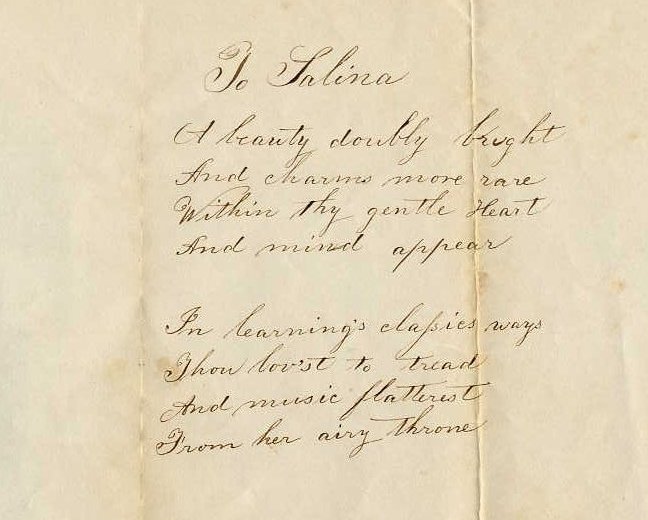 To Salina
A beauty doubly bright
And charms more rare
Within thy gentle Heart
And mind appear
In learning's claſsics ways
Thou lov'st to tread
And music flatterest
From her airy throne